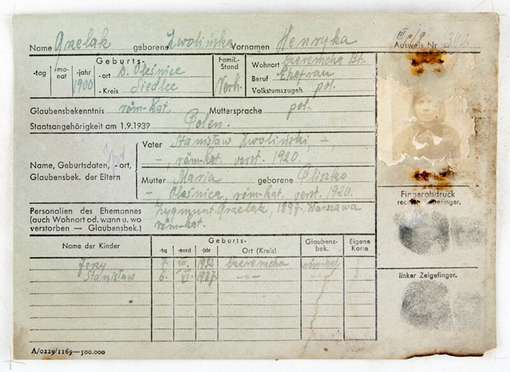 Name Grzelak geborene Zwolińska Vornamen Henryka Ausweis Nr.
Geburts- Famil.- Stand Wohnort Szeremcha Bt.
-tag -mo-nat -jahr -ort D. Oleśnice Beruf Ehefrau
1900 -Kreis Siedlce Verh. Volkstumszugeh. pol.
Glaubensbekenntnis röm-kat. Muttersprache pol.
Staatsangehörigkeit am 1.9.1939 Polen.
Vater Stanisław Zwoliński, -
- , röm-kat. verst. 1920.
Name, Geburtsdaten, -ort, Glaubensbek. der Eltern
Mutter Maria geborene Pliszko
- Oleśnica, röm-kat. verst. 1920.
Personalien des Ehemannes Zygmunt Grzelak, 1897. Warszawa
(auch Wohnort od. wann u. wo röm-kat.
verstorben - Glaubensbek.)
Fingerabdruck
rechter Zeigefinger.
Name der Kinder Geburts- Glaubens-bek. Eigene Karte
-tg -mond -jahr Ort (Kreis)
Jerzy 7.
Stanisław 6. VI. 1927 -"-
linker Zeigefinger.
A/0229/1169—500.000